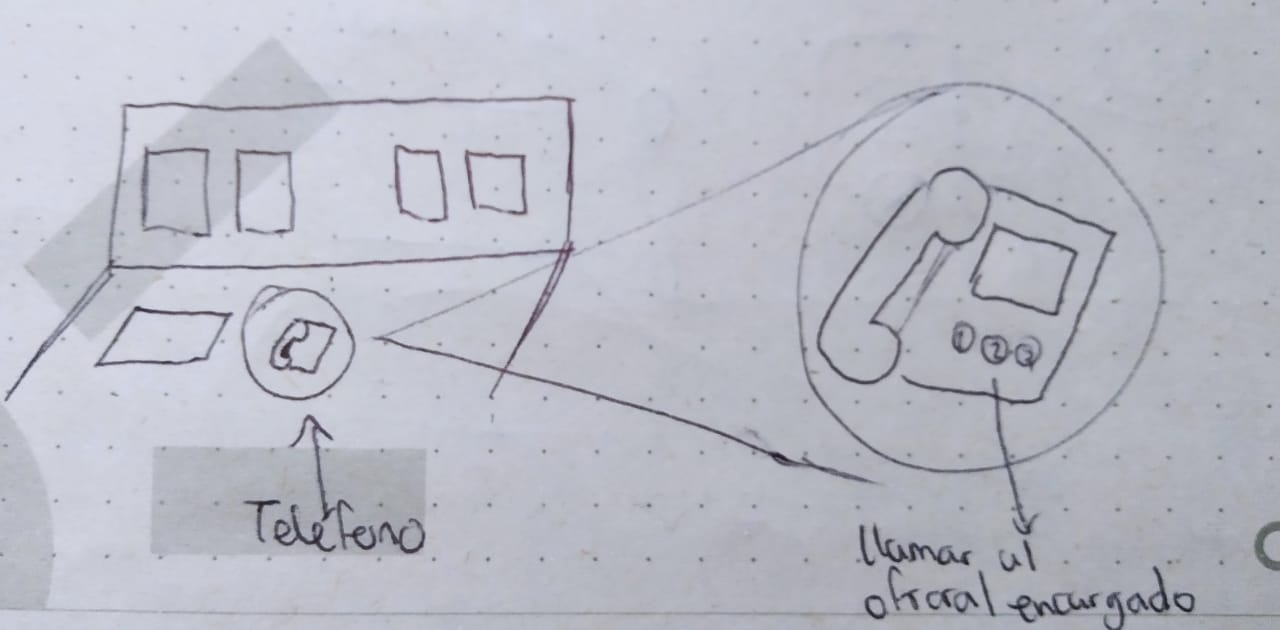 ① ② ③
Teléfono
llamar al
oficial encargado